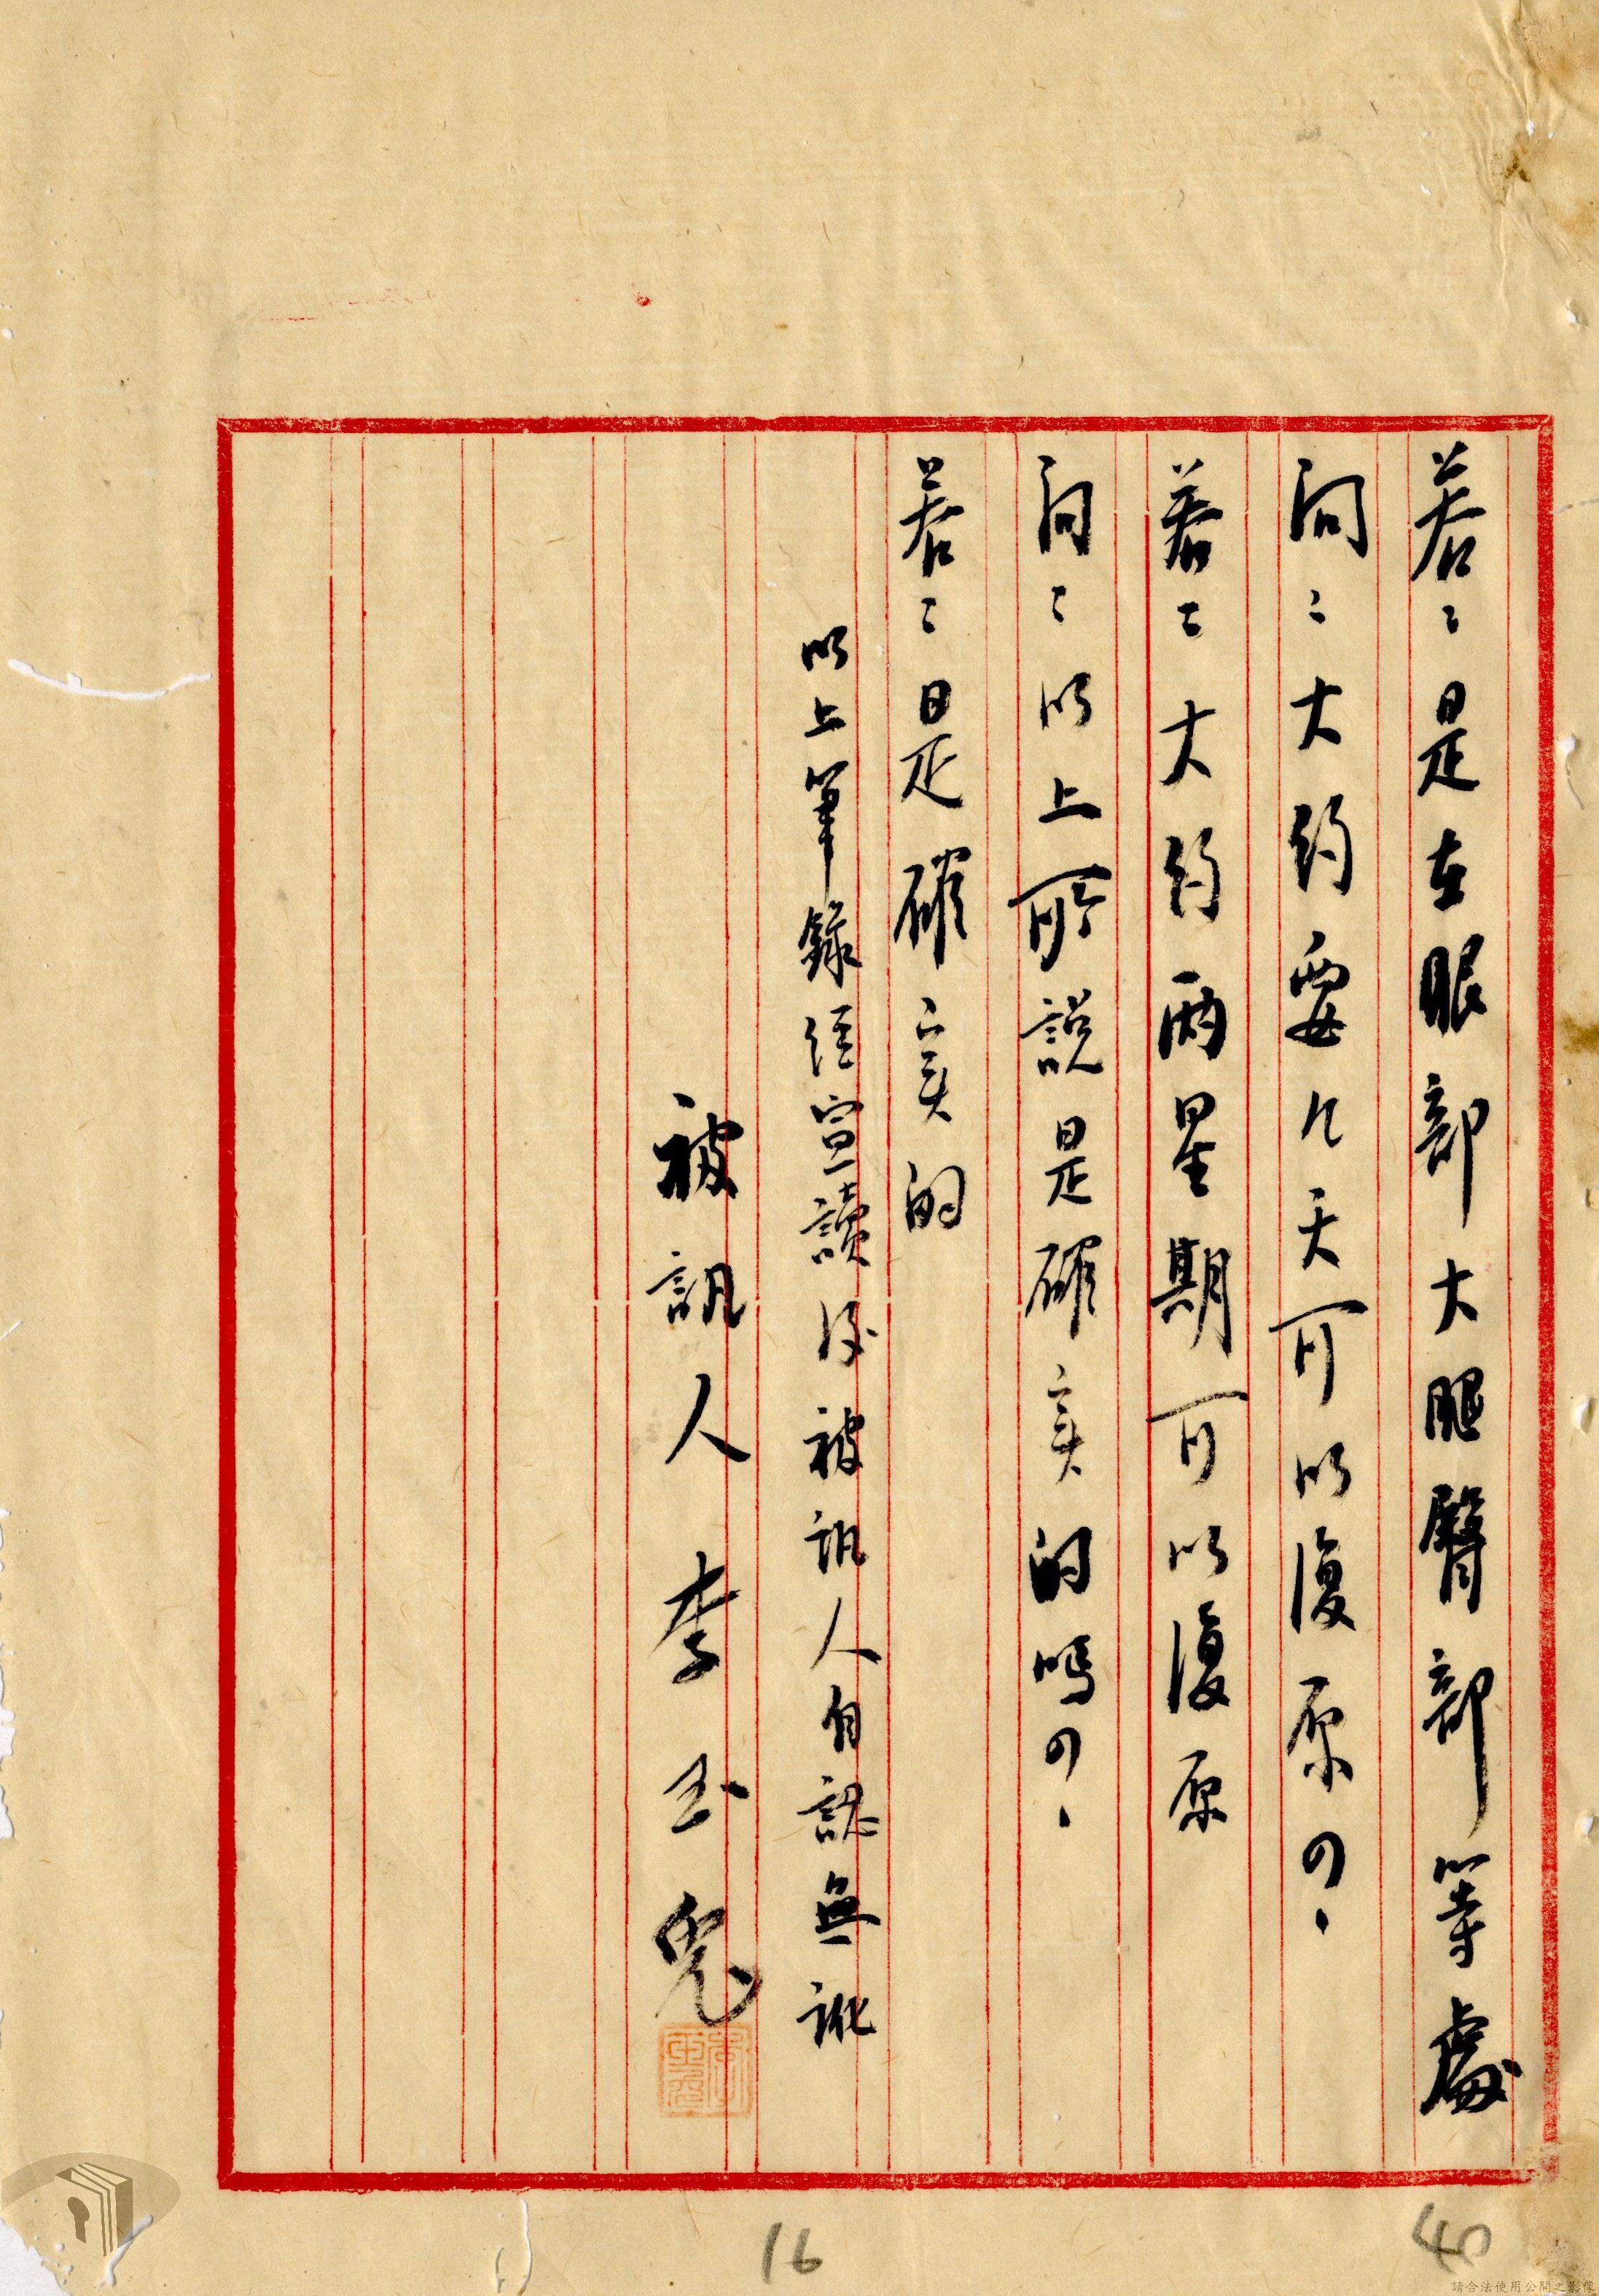 答：是在眼部大腿臀部等處
問：大約要几天可以復原の、
答：大約兩星期可以復原
問：以上所說是確实的嗎の、
答：是確实的
以上筆錄經宣讀後被訊人自認無訛
被訊人 李玉兒
16
40
請合法使用公開之影像